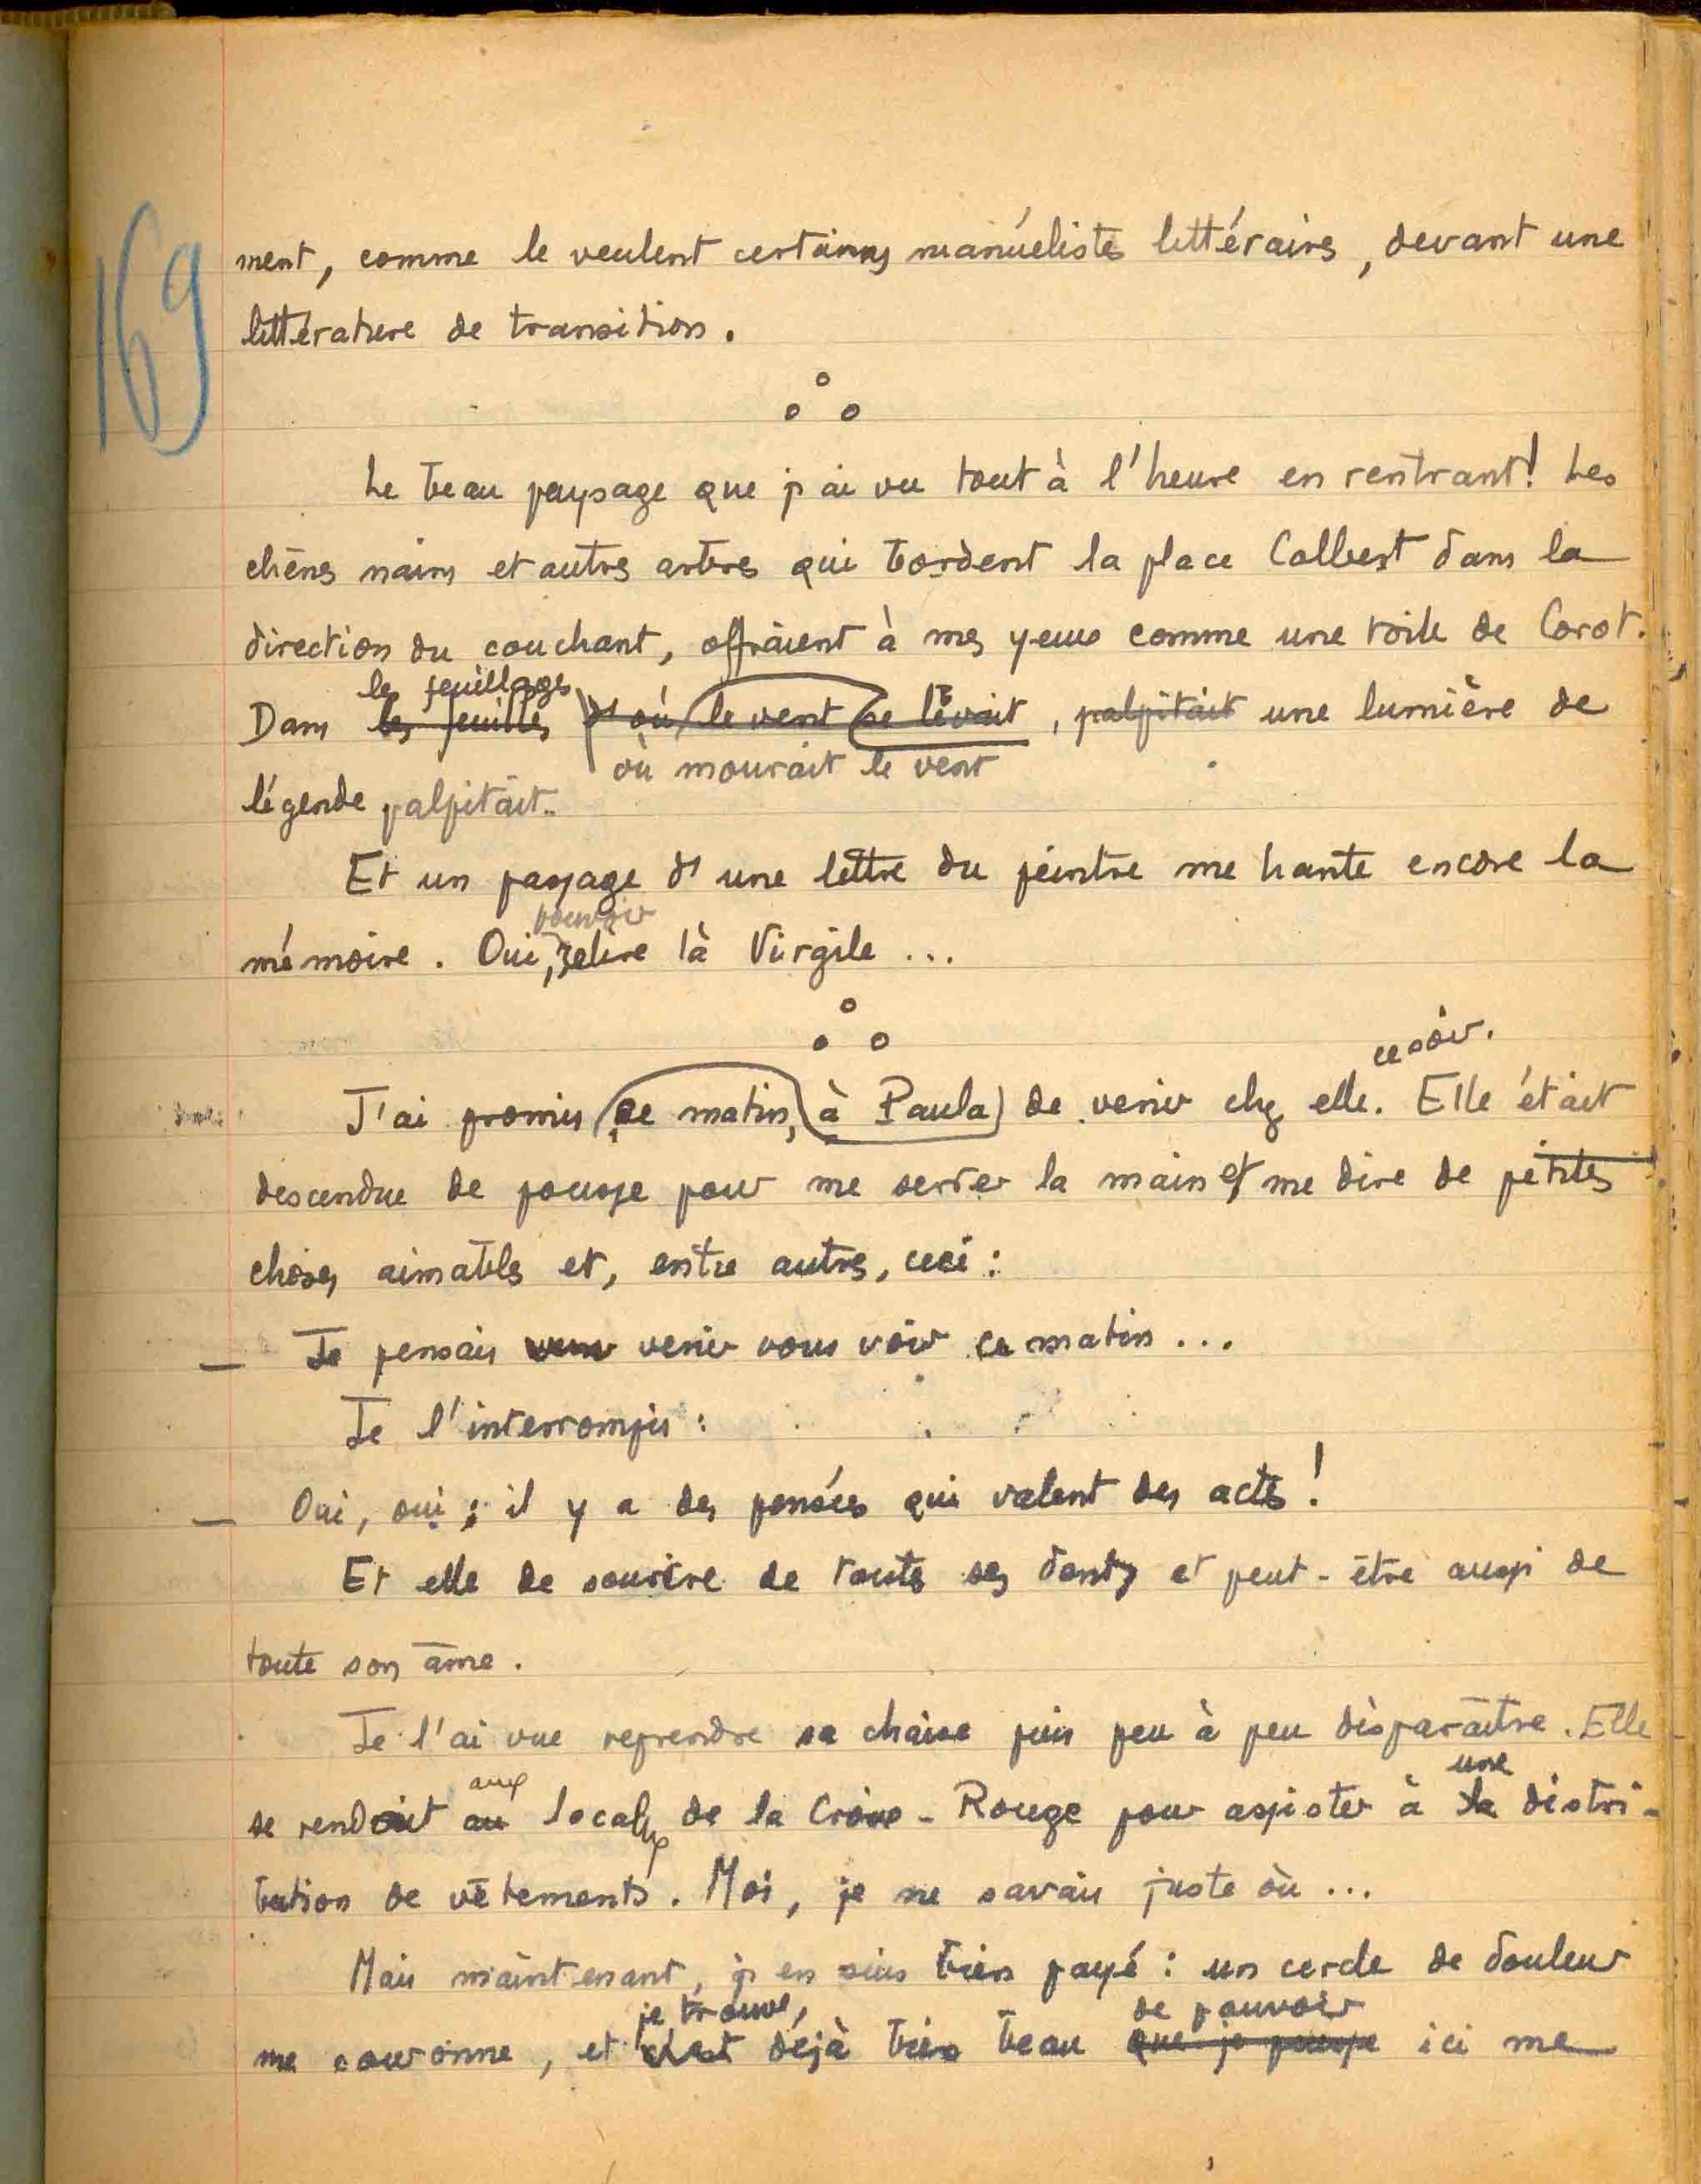 169
ment, comme le veulent certains manuélistes littéraires, devant une
littérature de transition.
Le beau paysage que j'ai vu tout à l'heure en rentrant! Les
chênes nains et autres arbres qui bordent la place Colbert dans la
direction du couchant, offraient à mes yeux comme une toile de Corot.
les feuillages
Dans les feuilles d'où le vent se levait, palpitait une lumière de
où mourait le vent
légende palpitait..
Et un passage d'une lettre du peintre me hante encore la
pouvoir
mémoire. Oui, relire là Virgile ...
ce soir.
J'ai promis ce matin, à Paula de venir chez elle. Elle était
descendue de pousse pour me serrer la main et me dire de petites
choses aimables et, entre autres, ceci :
— Je pensais venir vous voir ce matin ...
Je l'interrompis :
— Oui, oui ; il y a des pensées qui valent des actes !
Et elle de sourire de toutes ses dents et peut-être aussi de
toute son âme.
Je l'ai vue reprendre sa chaise puis peu à peu disparaître. Elle
aux
une
se rendait au locaux de la Croix-Rouge pour assister à la distri-
bution de vêtements. Moi, je ne savais juste où ...
Mais maintenant, j'en suis bien payé : un cercle de douleur
je trouve,
de pouvoir
me couronne, et c'est déjà bien beau que je puisse ici me